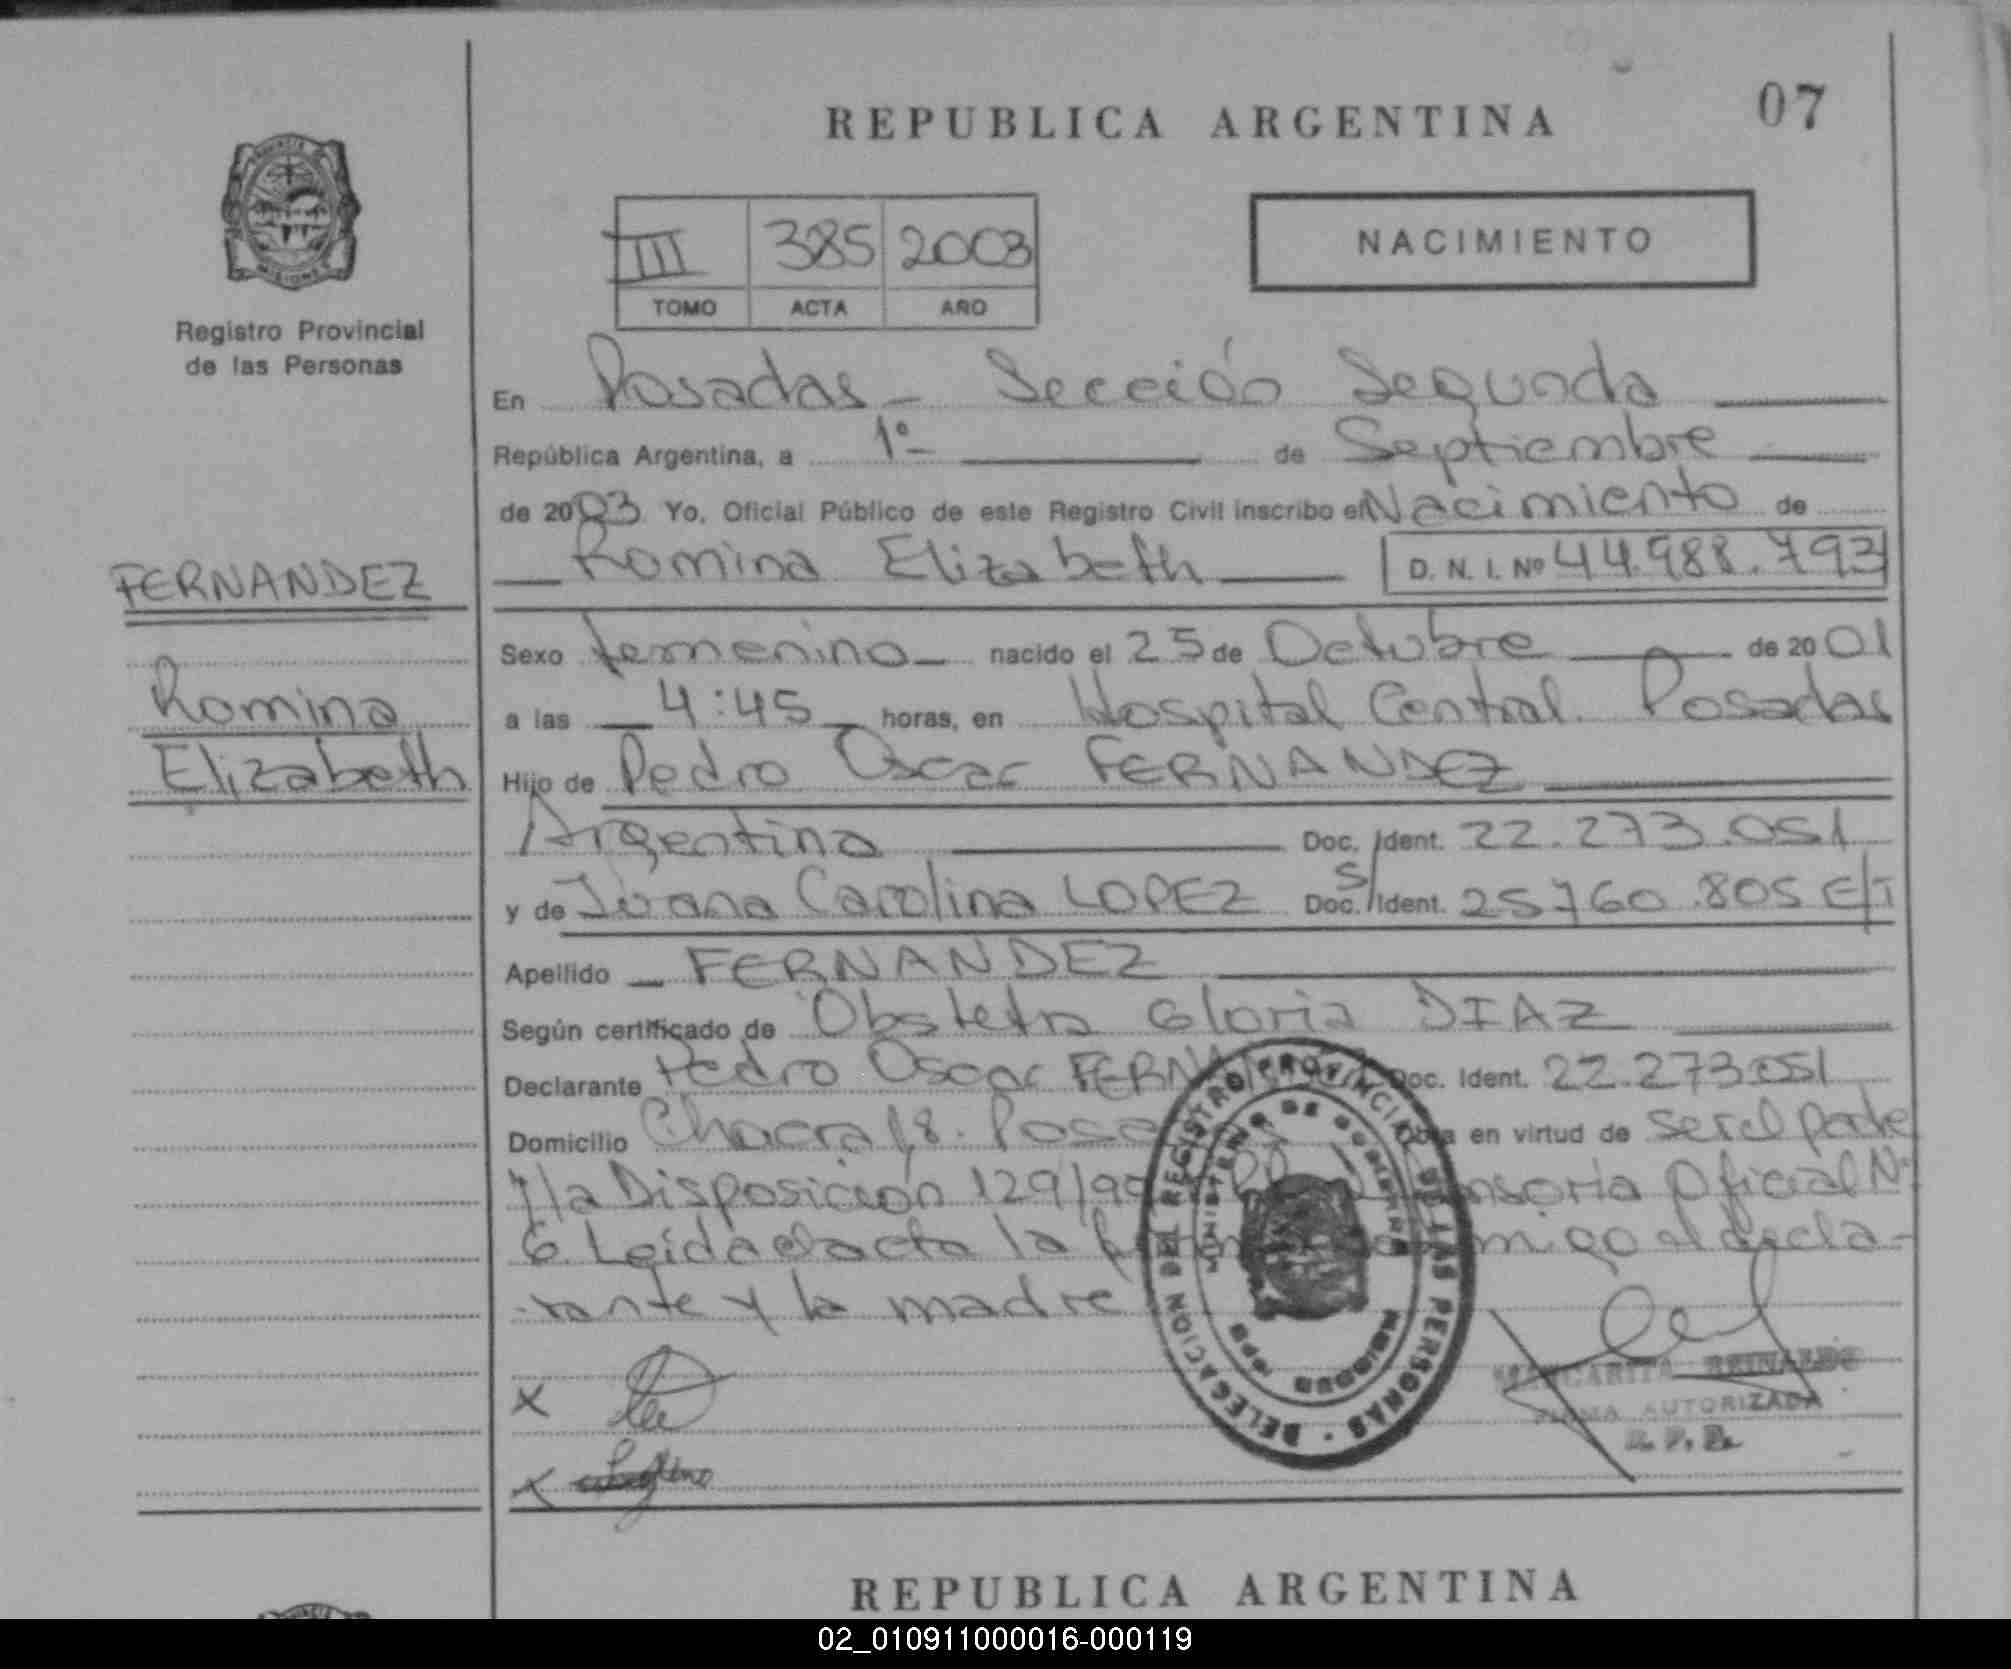 REPUBLICA ARGENTINA
07
PROVINCIA DE
MISIONES
Registro Provincial
de las Personas
III 385 2003
TOMO ACTA AÑO
NACIMIENTO
En Posadas - Sección Segunda
República Argentina, a 1º de Septiembre
de 2003 Yo, Oficial Público de este Registro Civil inscribo el Nacimiento de
Romina Elizabeth D. N. I. Nº 44.988.793
FERNANDEZ
Romina
Elizabeth
Sexo femenino nacido el 25 de Octubre de 2001
a las 4:45 horas, en Hospital Central. Posadas
Hijo de Pedro Oscar FERNANDEZ
Argentina Doc. Ident. 22.273.051
y de Juana Carolina LOPEZ S/ Doc. Ident. 25760.805 E/T
Apellido FERNANDEZ
Según certificado de Obstetra Gloria DIAZ
Declarante Pedro Oscar Doc. Ident. 22.273051
Domicilio Chacra 18. Obra en virtud de ser el padre
y la Disposición 129/ Oficial Nº
6 Leida el acta la el decla-
rante y la madre
x
x
DELEGACION DEL REGISTRO PROVINCIAL DE LAS PERSONAS
MINISTERIO DE GOBIERNO
MARGARITA REINALDO
FIRMA AUTORIZADA
R. P. P.
REPUBLICA ARGENTINA
02_010911000016-000119